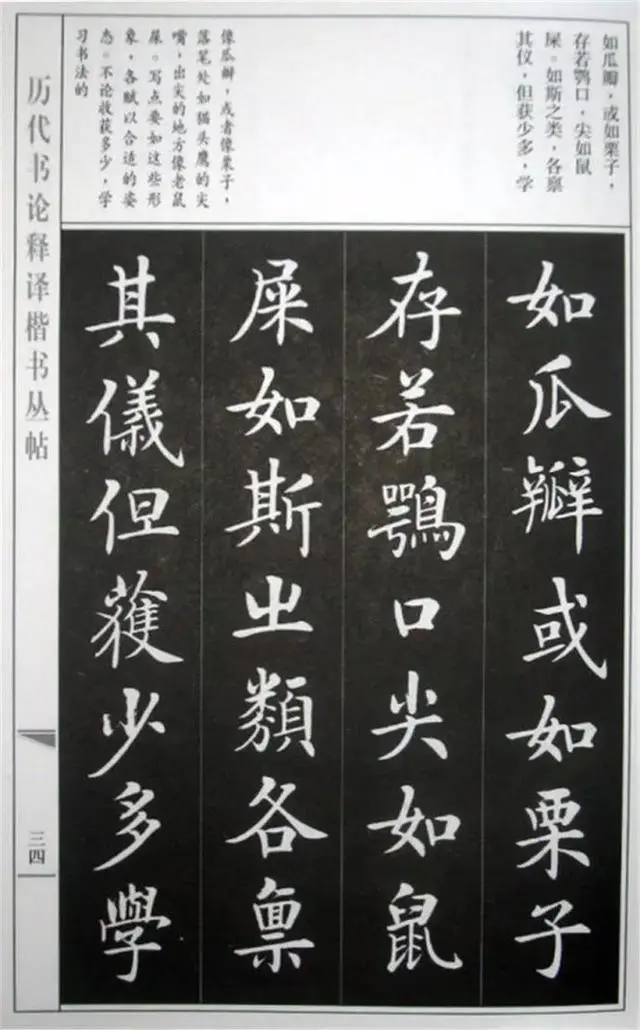 如瓜瓣，或如栗子，
存若鹗口，尖如鼠
屎。如斯之类，各禀
其仪，但获少多，学
像瓜瓣，或者像栗子，
落笔处如猫头鹰的尖
嘴，出尖的地方像老鼠
屎。写点要如这些形
象，各赋以合适的姿
态。不论收获多少，学
习书法的
如瓜瓣或如栗子
存若鶚口尖如鼠
屎如斯㞢類各稟
其儀但獲少多學
历代书论释译楷书丛帖
三四